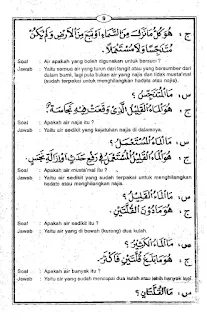 5
ج : هُوَ كُلُّ مَا نَزَلَ مِنَ السَّمَاءِ اَوْ نَبَعَ مِنَ الْاَرْضِ وَلَمْ يَكُنْ
مُتَنَجِّسًا وَلَا مُسْتَعْمَلًا.
Soal : Air apakah yang boleh digunakan untuk bersuci ?
Jawab : Yaitu semua air yang turun dari langit atau yang bersumber dari
dalam bumi, lagi pula bukan air yang najis dan tidak musta'mal
(sudah terpakai untuk menghilangkan hadats atau najis).
س : مَا الْمُتَنَجِّسُ ؟
ج : هُوَ الْمَاءُ الْقَلِيْلُ الَّذِيْ وَقَعَتْ فِيْهِ نَجَاسَةٌ.
Soal : Apakah air najis itu ?
Jawab : Yaitu air sedikit yang kejatuhan najis di dalamnya.
س : مَا الْمُسْتَعْمَلُ ؟
ج : هُوَ الْمَاءُ الْقَلِيْلُ الْمُسْتَعْمَلُ فِيْ رَفْعِ حَدَثٍ اَوْ اِزَالَةِ نَجَسٍ.
Soal : Apakah air musta'mal itu ?
Jawab : Yaitu air sedikit yang sudah terpakai untuk menghilangkan hadats
dan menghilangkan najis.
س : مَا الْمَاءُ الْقَلِيْلُ ؟
ج : هُوَ مَا دُوْنَ الْقُلَّتَيْنِ.
Soal : Apakah air sedikit itu ?
Jawab : Yaitu air yang di bawah (kurang) dua kulah.
س : مَا الْمَاءُ الْكَثِيْرُ ؟
ج : هُوَ مَا بَلَغَ قُلَّتَيْنِ فَاَكْثَرَ.
Soal : Apakah air banyak itu ?
Jawab : Yaitu air yang sudah mencapai dua kulah atau lebih banyak lagi.
س : مَا الْقُلَّتَانِ ؟